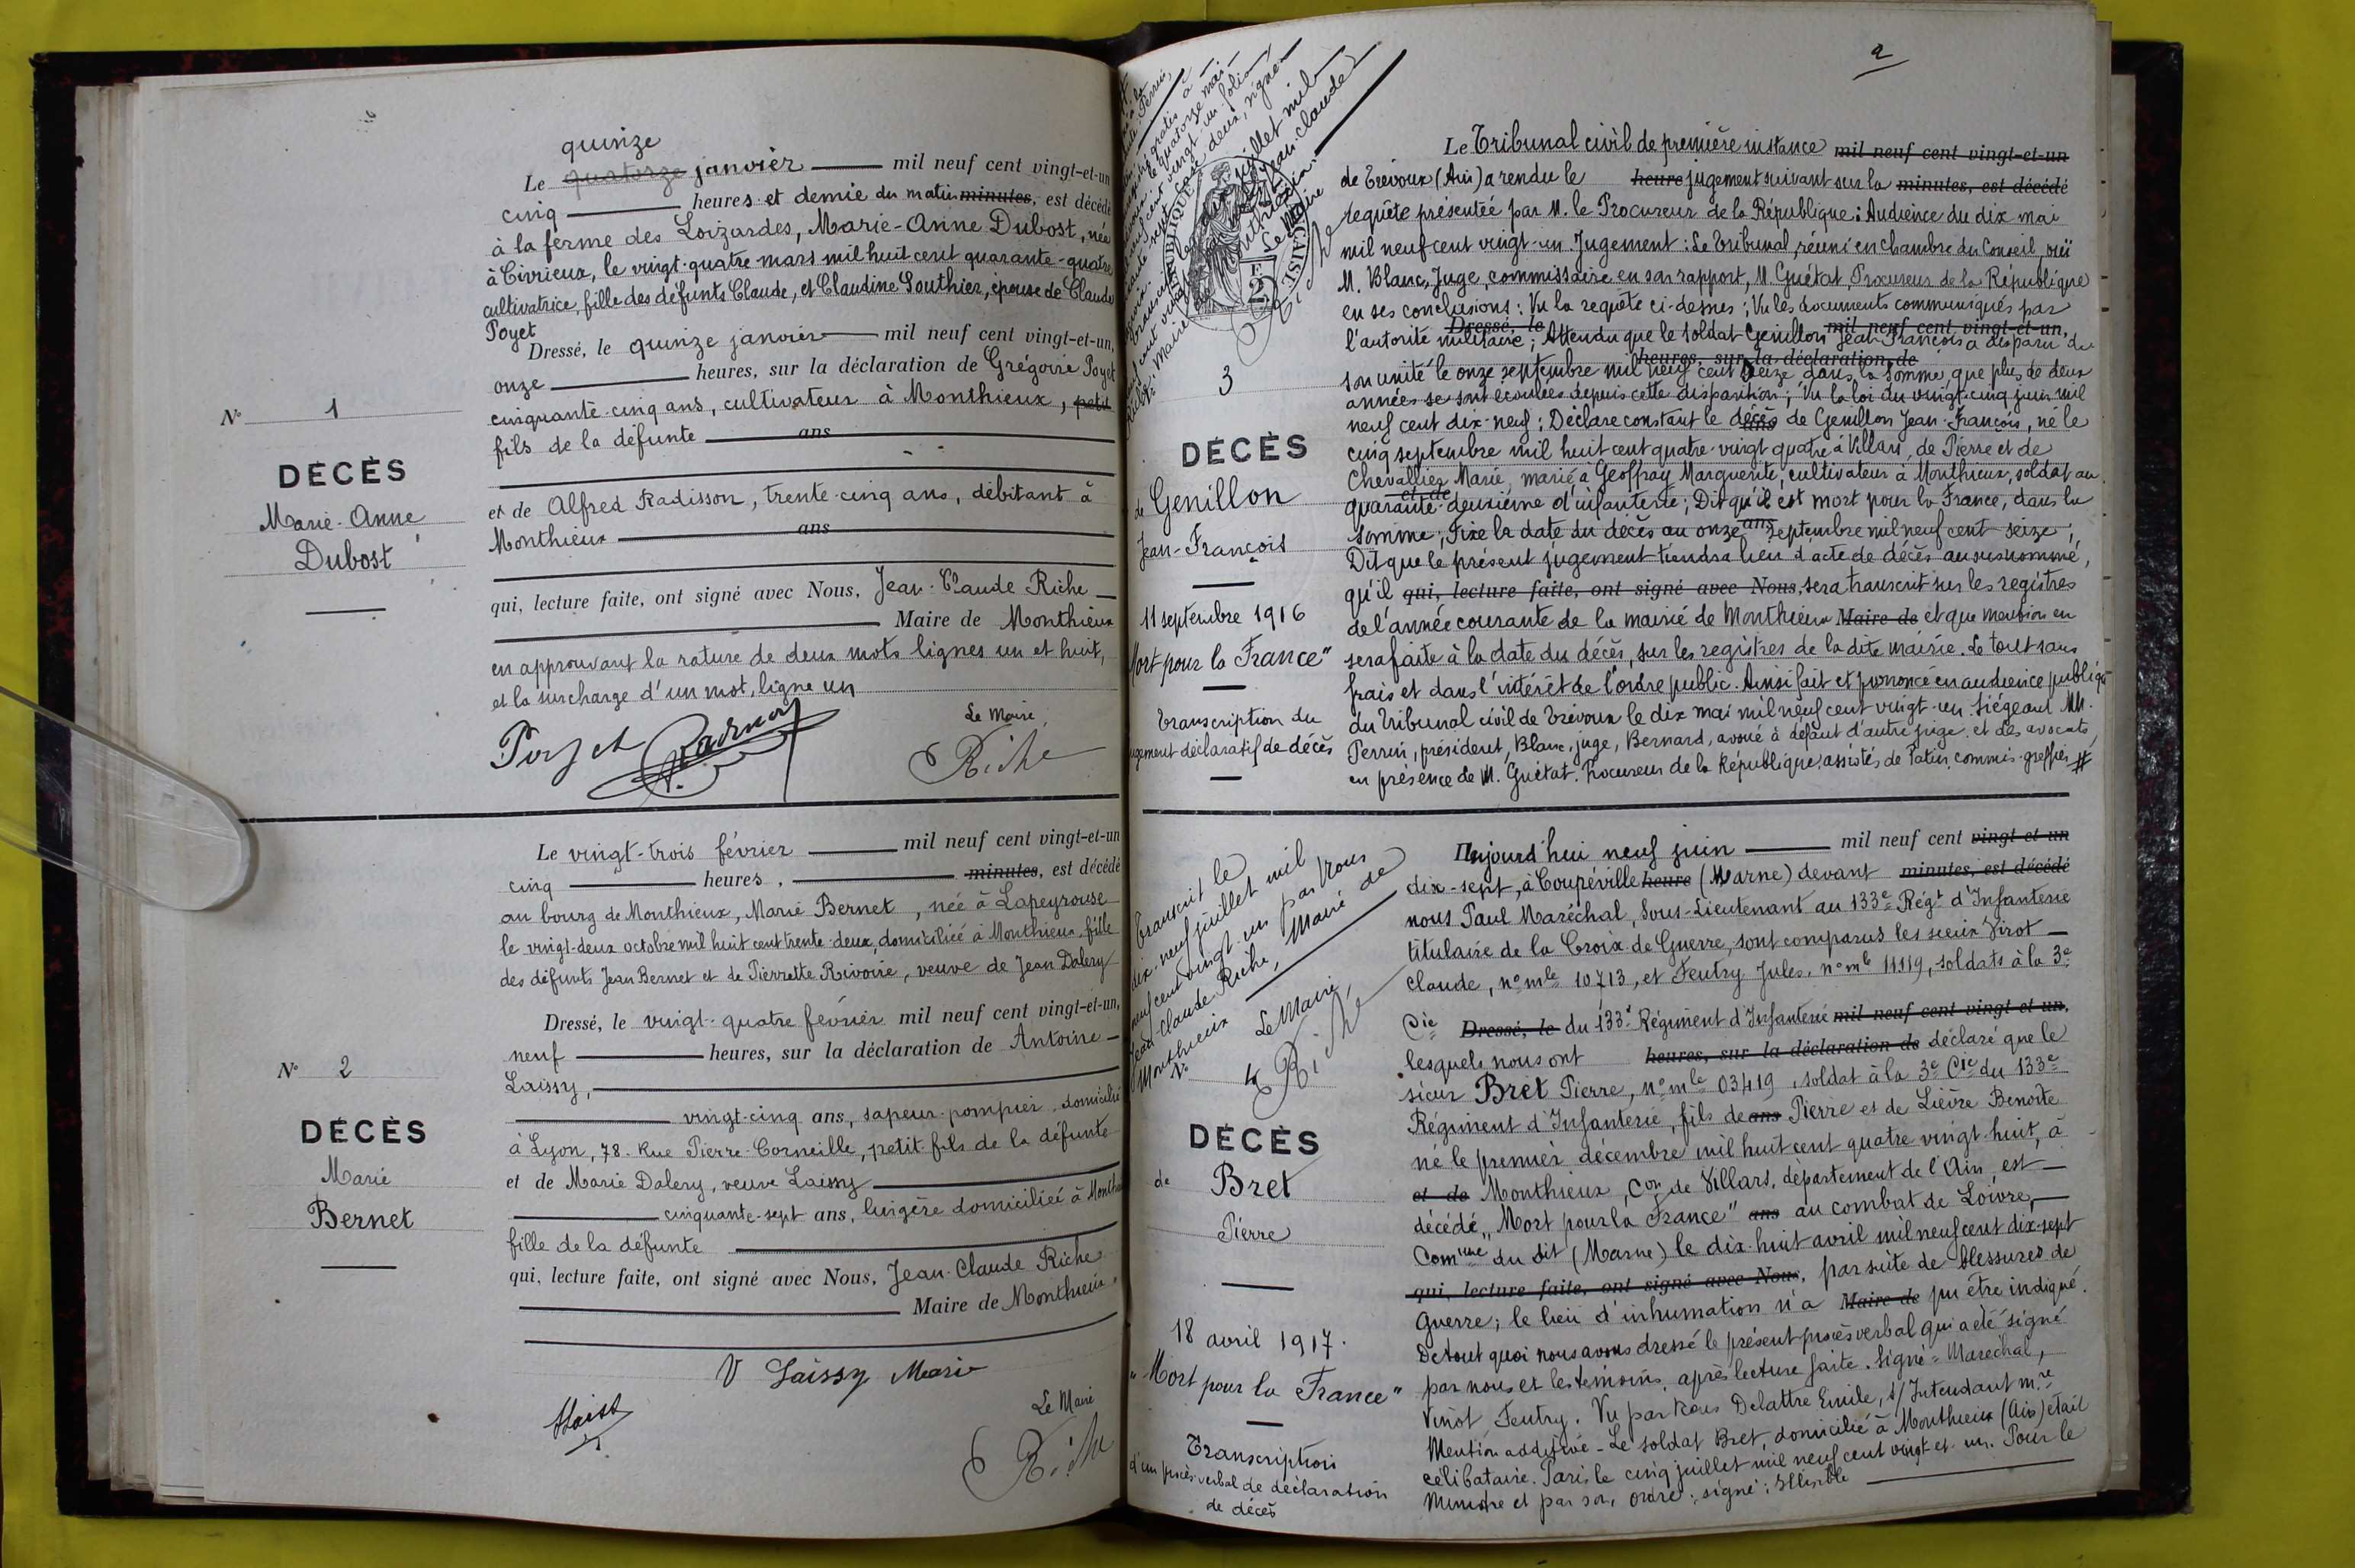 N° 1
DÉCÈS
Marie-Anne
Dubost
quinze
Le quatorze janvier mil neuf cent vingt-et-un
cinq heures et demie du matin minutes, est décédé
à la ferme des Loizardes, Marie-Anne Dubost, née
à Civrieux, le vingt-quatre mars mil huit cent quarante-quatre
cultivatrice, fille des défunts Claude, et Claudine Gouthier, épouse de Claude
Poyet
Dressé, le quinze janvier mil neuf cent vingt-et-un,
onze heures, sur la déclaration de Grégoire Poyet
cinquante-cinq ans, cultivateur à Monthieux, petit
fils de la défunte ans
et de Alfred Radisson, trente-cinq ans, débitant à
Monthieux ans
qui, lecture faite, ont signé avec Nous, Jean-Claude Riche
Maire de Monthieux
en approuvant la rature de deux mots lignes un et huit,
et la surcharge d'un mot, ligne un
Poyet
Le Maire,
Riche
N° 2
DÉCÈS
Marie
Bernet
Le vingt-trois février mil neuf cent vingt-et-un
cinq heures, minutes, est décédé
au bourg de Monthieux, Marie Bernet, née à Lapeyrouse
le vingt-deux octobre mil huit cent trente-deux, domiciliée à Monthieux, fille
des défunts Jean Bernet et de Pierrette Rivoire, veuve de Jean Dalery
Dressé, le vingt-quatre février mil neuf cent vingt-et-un,
neuf heures, sur la déclaration de Antoine
Laissy,
vingt-cinq ans, sapeur-pompier, domicilié
à Lyon, 78. Rue Pierre-Corneille, petit fils de la défunte
et de Marie Dalery, veuve Laissy
cinquante-sept ans, lingère domiciliée à
fille de la défunte
qui, lecture faite, ont signé avec Nous, Jean-Claude Riche
Maire de Monthieux,
V Laissy Marie
Le Maire
Riche
2
3
DÉCÈS
de Genillon
Jean-François
11 septembre 1916
Mort pour la France"
Transcription du
jugement déclaratif de décès
Le Tribunal civil de première instance mil neuf cent vingt-et-un
de Trévoux (Ain) a rendu le heure jugement suivant sur la minutes, est décédé
requête présentée par M. le Procureur de la République : Audience du dix mai
mil neuf cent vingt-un. Jugement : Le Tribunal, réuni en chambre du Conseil, ouï
M. Blanc, Juge, commissaire en son rapport, M. Guétat, Procureur de la République
en ses conclusions : Vu la requête ci-dessus ; Vu les documents communiqués par
Dressé, le mil neuf cent vingt-et-un,
l'autorité militaire ; Attendu que le soldat Genillon Jean-François a disparu de
heures, sur la déclaration de
son unité le onze septembre mil neuf cent seize dans la Somme, que plus de deux
années se sont écoulées depuis cette disparition ; Vu la loi du vingt-cinq juin mil
neuf cent dix-neuf ; Déclare constant le décès ans de Genillon Jean-François, né le
cinq septembre mil huit cent quatre-vingt quatre à Villars, de Pierre et de
Chevallier Marie, marié à Geoffray Marguerite, cultivateur à Monthieux, soldat au
et de
quarante-deuxième d'infanterie ; Dit qu'il est mort pour la France, dans la
Somme ; Fixe la date du décès au onze ans septembre mil neuf cent seize ;
Dit que le présent jugement tiendra lieu d'acte de décès au susnommé,
qu'il qui, lecture faite, ont signé avec Nous, sera transcrit sur les registres
de l'année courante de la mairie de Monthieux Maire de et que mention en
sera faite à la date du décès, sur les registres de la dite mairie. Le tout sans
frais et dans l'intérêt de l'ordre public. Ainsi fait et prononcé en audience publique
du Tribunal civil de Trévoux le dix mai mil neuf cent vingt-un. Siégeant MM.
Perrin, président, Blanc, juge, Bernard, avoué à défaut d'autre juge et des avocats,
en présence de M. Guétat. Procureur de la République, assistés de Patin, commis-greffier #
Transcrit le
dix-neuf juillet mil
neuf cent vingt-un par Nous
Jean-Claude Riche, Maire de
Monthieux
Le Maire,
Riche
N° 4
DÉCÈS
de Bret
Pierre
18 avril 1917.
"Mort pour la France"
Transcription
d'un procès-verbal de déclaration
de décès
Aujourd'hui neuf juin mil neuf cent vingt-et-un
dix-sept, à Coupéville heure (Marne) devant minutes, est décédé
nous Paul Maréchal, Sous-Lieutenant au 133e Régt d'Infanterie
titulaire de la Croix de Guerre, sont comparus les sieurs Virot
Claude, n° mle 10713, et Feutry Jules, n° mle 11119, soldats à la 3e
Cie Dressé, le du 133e Régiment d'Infanterie mil neuf cent vingt et un,
lesquels nous ont heures, sur la déclaration de déclaré que le
sieur Bret Pierre, n° mle 03419, soldat à la 3e Cie du 133e
Régiment d'Infanterie, fils de ans Pierre et de Lièvre Benoite
né le premier décembre mil huit cent quatre vingt-huit, à
et de Monthieux, Con de Villars, département de l'Ain, est
décédé "Mort pour la France" ans au combat de Loivre,
Commune du dit (Marne) le dix-huit avril mil neuf cent dix-sept
qui, lecture faite, ont signé avec Nous, par suite de blessures de
guerre ; le lieu d'inhumation n'a Maire de pu être indiqué.
De tout quoi nous avons dressé le présent procès verbal qui a été signé
par nous et les témoins, après lecture faite. Signé = Maréchal,
Virot Feutry. Vu par Nous Delattre Emile, s/Intendant mre
Mention additive - Le soldat Bret, domicilié à Monthieux (Ain) était
célibataire. Paris le cinq juillet mil neuf cent vingt-et-un. Pour le
Ministre et par son ordre : signé : illisible